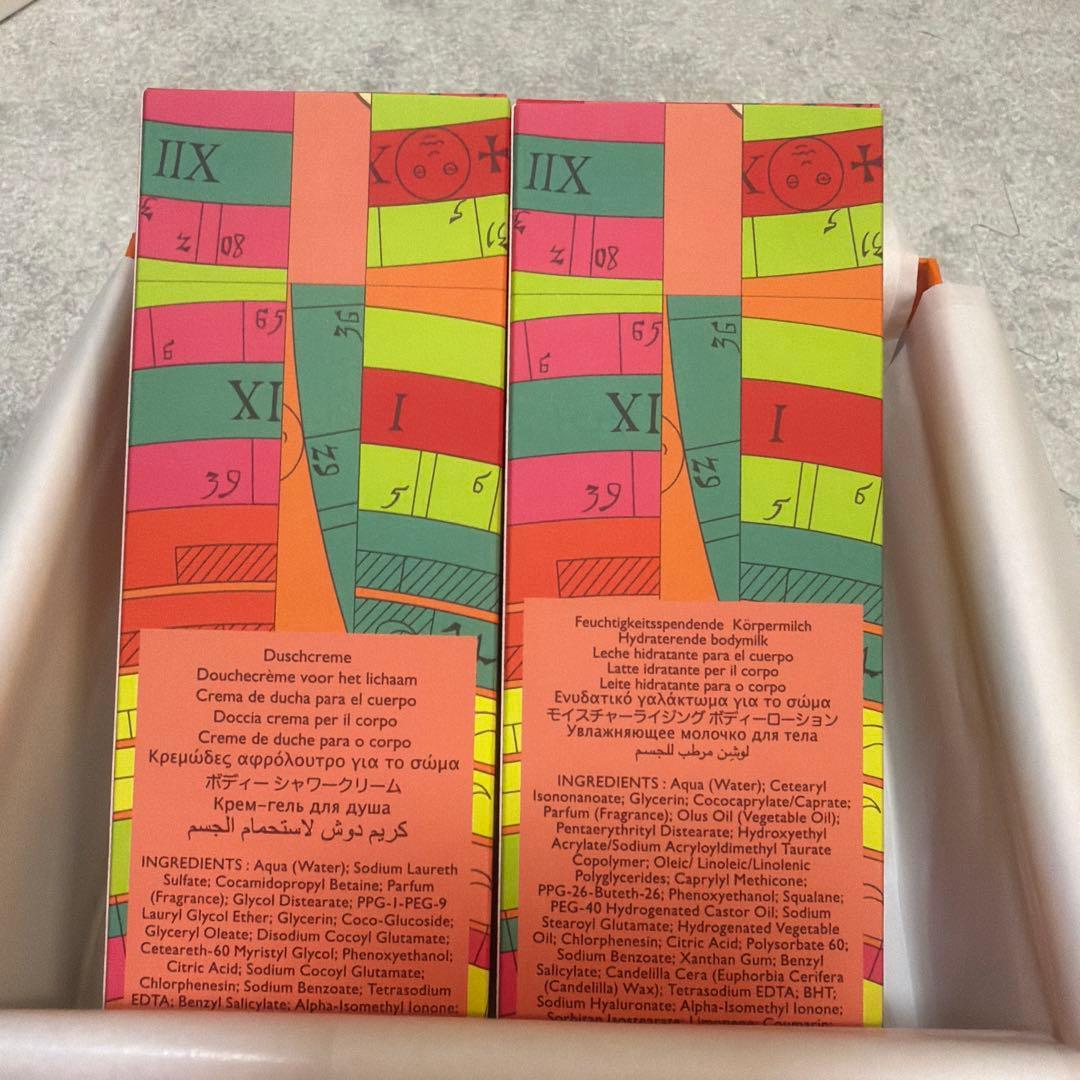 IIX
X
5
z
08
65
6
36
XI
I
62
39
5
6
Duschcreme
Douchecrème voor het lichaam
Crema de ducha para el cuerpo
Doccia crema per il corpo
Creme de duche para o corpo
Κρεμώδες αφρόλουτρο για το σώμα
ボディー シャワークリーム
Крем-гель для душа
كريم دوش لاستحمام الجسم
INGREDIENTS : Aqua (Water); Sodium Laureth
Sulfate; Cocamidopropyl Betaine; Parfum
(Fragrance); Glycol Distearate; PPG-1-PEG-9
Lauryl Glycol Ether; Glycerin; Coco-Glucoside;
Glyceryl Oleate; Disodium Cocoyl Glutamate;
Ceteareth-60 Myristyl Glycol; Phenoxyethanol;
Citric Acid; Sodium Cocoyl Glutamate;
Chlorphenesin; Sodium Benzoate; Tetrasodium
EDTA; Benzyl Salicylate; Alpha-Isomethyl Ionone;
IIX
X
5
z
08
65
6
36
XI
I
62
39
5
6
Feuchtigkeitsspendende Körpermilch
Hydraterende bodymilk
Leche hidratante para el cuerpo
Latte idratante per il corpo
Leite hidratante para o corpo
Ενυδατικό γαλάκτωμα για το σώμα
モイスチャーライジング ボディーローション
Увлажняющее молочко для тела
لوشن مرطب للجسم
INGREDIENTS : Aqua (Water); Cetearyl
Isononanoate; Glycerin; Cococaprylate/Caprate;
Parfum (Fragrance); Olus Oil (Vegetable Oil);
Pentaerythrityl Distearate; Hydroxyethyl
Acrylate/Sodium Acryloyldimethyl Taurate
Copolymer; Oleic/ Linoleic/Linolenic
Polyglycerides; Caprylyl Methicone;
PPG-26-Buteth-26; Phenoxyethanol; Squalane;
PEG-40 Hydrogenated Castor Oil; Sodium
Stearoyl Glutamate; Hydrogenated Vegetable
Oil; Chlorphenesin; Citric Acid; Polysorbate 60;
Sodium Benzoate; Xanthan Gum; Benzyl
Salicylate; Candelilla Cera (Euphorbia Cerifera
(Candelilla) Wax); Tetrasodium EDTA; BHT;
Sodium Hyaluronate; Alpha-Isomethyl Ionone;
Sorbitan Isostearate; Limonene; Coumarin;